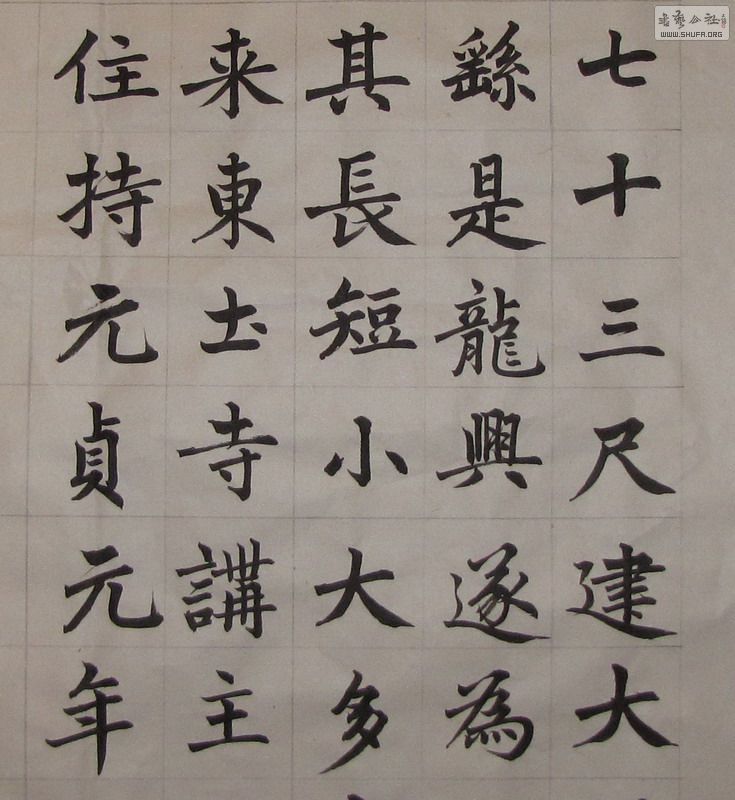 七十三尺建大
繇是龍興遂為
其長短小大多
来東土寺講主
住持元貞元年
WWW.SHUFA.ORG